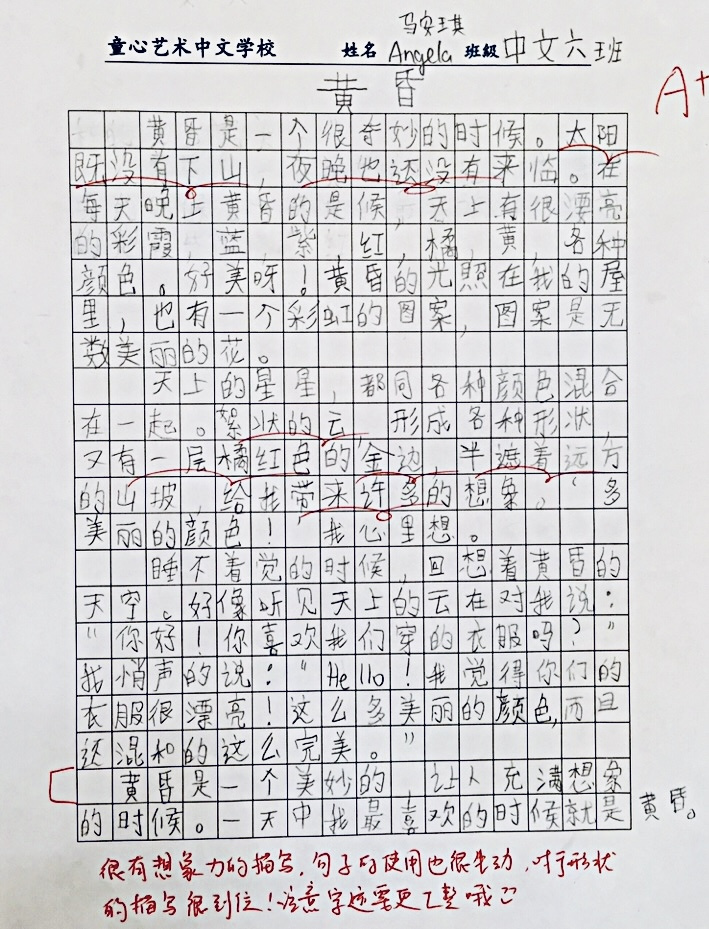 马实琪
童心艺术中文学校 姓名 Angela 班級 中文六班
黄昏
A+
黄昏是一个很奇妙的时候。太阳
既没有下山，夜晚也还没有来临。在
每天晚上黄昏的是候，天上有很漂亮
的彩霞，蓝，紫，红，橘，黄，各种
颜色。好美呀！黄昏的光照在我的屋
里，也有一个彩虹的图案，图案是无
数美丽的花。
天上的星星，都同各种颜色混合
在一起。絮状的云，形成各种形状，
又有一层橘红色的金边，半遮着远方
的山坡，给我带来许多的想象。“多
美丽的颜色！”我心里想。
睡不着觉的时候，回想着黄昏的
天空。好像听见天上的云在对我说：
“你好！你喜欢我们穿的衣服吗？”
我悄声的说：“Hello！我觉得你们的
衣服很漂亮！这么多美丽的颜色，而且
还混和的这么完美。”
黄昏是一个美妙的，让人充满想象
的时候。一天中我最喜欢的时候就是黄昏。
很有想象力的描写，句子的使用也很生动，对于形状
的描写很到位！注意字迹需更工整哦